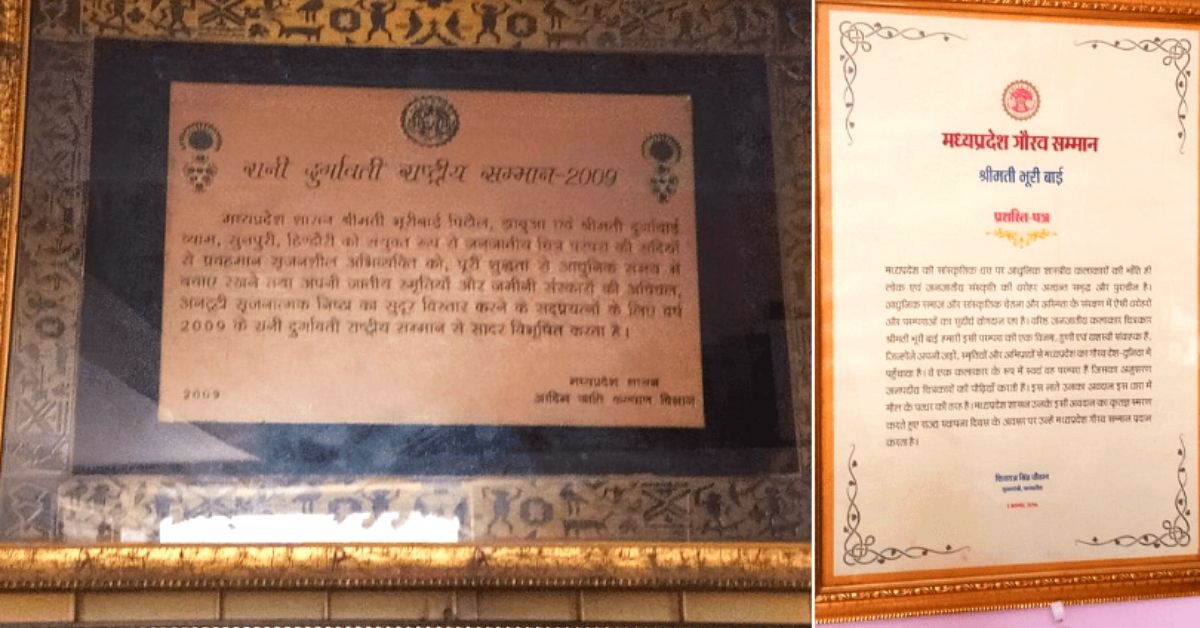 रानी दुर्गावती राष्ट्रीय सम्मान-2009
मध्यप्रदेश शासन श्रीमती भूरीबाई पिटोल, झाबुआ एवं श्रीमती दुर्गाबाई
व्याम, सुनपुरी, डिण्डौरी को संयुक्त रूप से जनजातीय चित्र परंपरा की सदियों
से प्रवहमान सृजनशील अभिव्यक्ति को, पूरी शुद्धता से आधुनिक समय में
बचाए रखने तथा अपनी जातीय स्मृतियों और जमीनी संस्कारों की
अनूठी सृजनात्मक निष्ठा का सुदूर विस्तार करने के सद्प्रयत्नों के लिए वर्ष
2009 के रानी दुर्गावती राष्ट्रीय सम्मान से सादर विभूषित करता है।
मध्यप्रदेश शासन
2009 आदिम जाति कल्याण विभाग
मध्यप्रदेश गौरव सम्मान
श्रीमती भूरी बाई
प्रशस्ति-पत्र
मध्यप्रदेश की सांस्कृतिक धरा पर आधुनिक शास्त्रीय कलाकारों की भाँति ही
लोक एवं जनजातीय संस्कृति की धरोहर अत्यन्त समृद्ध और पुरातन है।
आधुनिक समाज और सांस्कृतिक चेतना और अस्मिता के संरक्षण में ऐसी धरोहरों
और परम्पराओं का सुदीर्घ योगदान रहा है। वरिष्ठ जनजातीय कलाकार चित्रकार
श्रीमती भूरी बाई हमारी इसी परम्परा की एक विनम्र, गुणी एवं यशस्वी संवाहक हैं,
जिन्होंने अपनी जड़ों, स्मृतियों और अभिप्रायों से मध्यप्रदेश का गौरव देश-दुनिया में
पहुँचाया है। वे एक कलाकार के रूप में स्वयं वह परम्परा हैं जिसका अनुसरण
जनपदीय चित्रकारों की पीढ़ियाँ करती हैं। इस नाते उनका अवदान इस धारा में
मील के पत्थर की तरह है। मध्यप्रदेश शासन उनके इसी अवदान का कृतज्ञ स्मरण
करते हुए राज्य स्थापना दिवस के अवसर पर उन्हें मध्यप्रदेश गौरव सम्मान प्रदान
करता है।
शिवराज सिंह चौहान
मुख्यमंत्री, मध्यप्रदेश